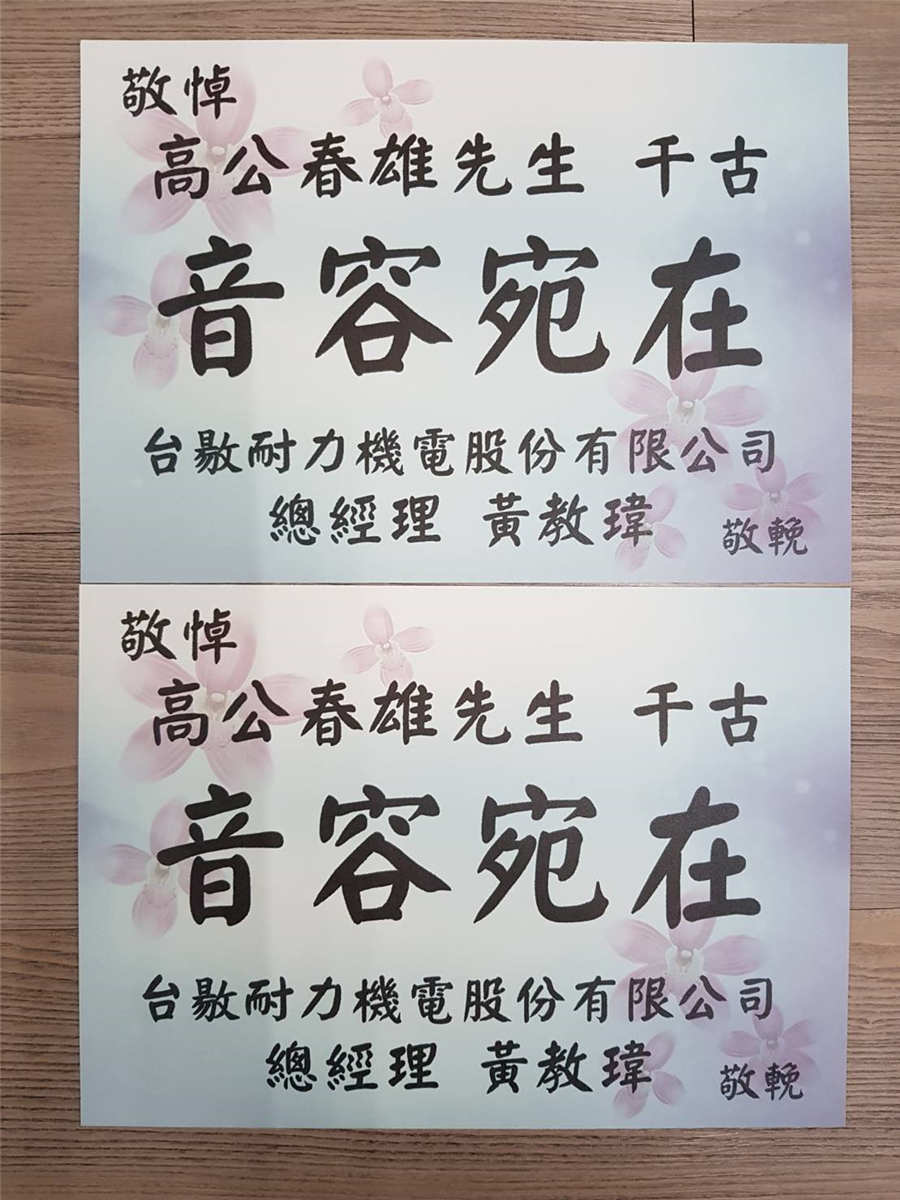 敬悼
高公春雄先生 千古
音容宛在
台勗耐力機電股份有限公司
總經理 黃教瑋
敬輓
敬悼
高公春雄先生 千古
音容宛在
台勗耐力機電股份有限公司
總經理 黃教瑋
敬輓